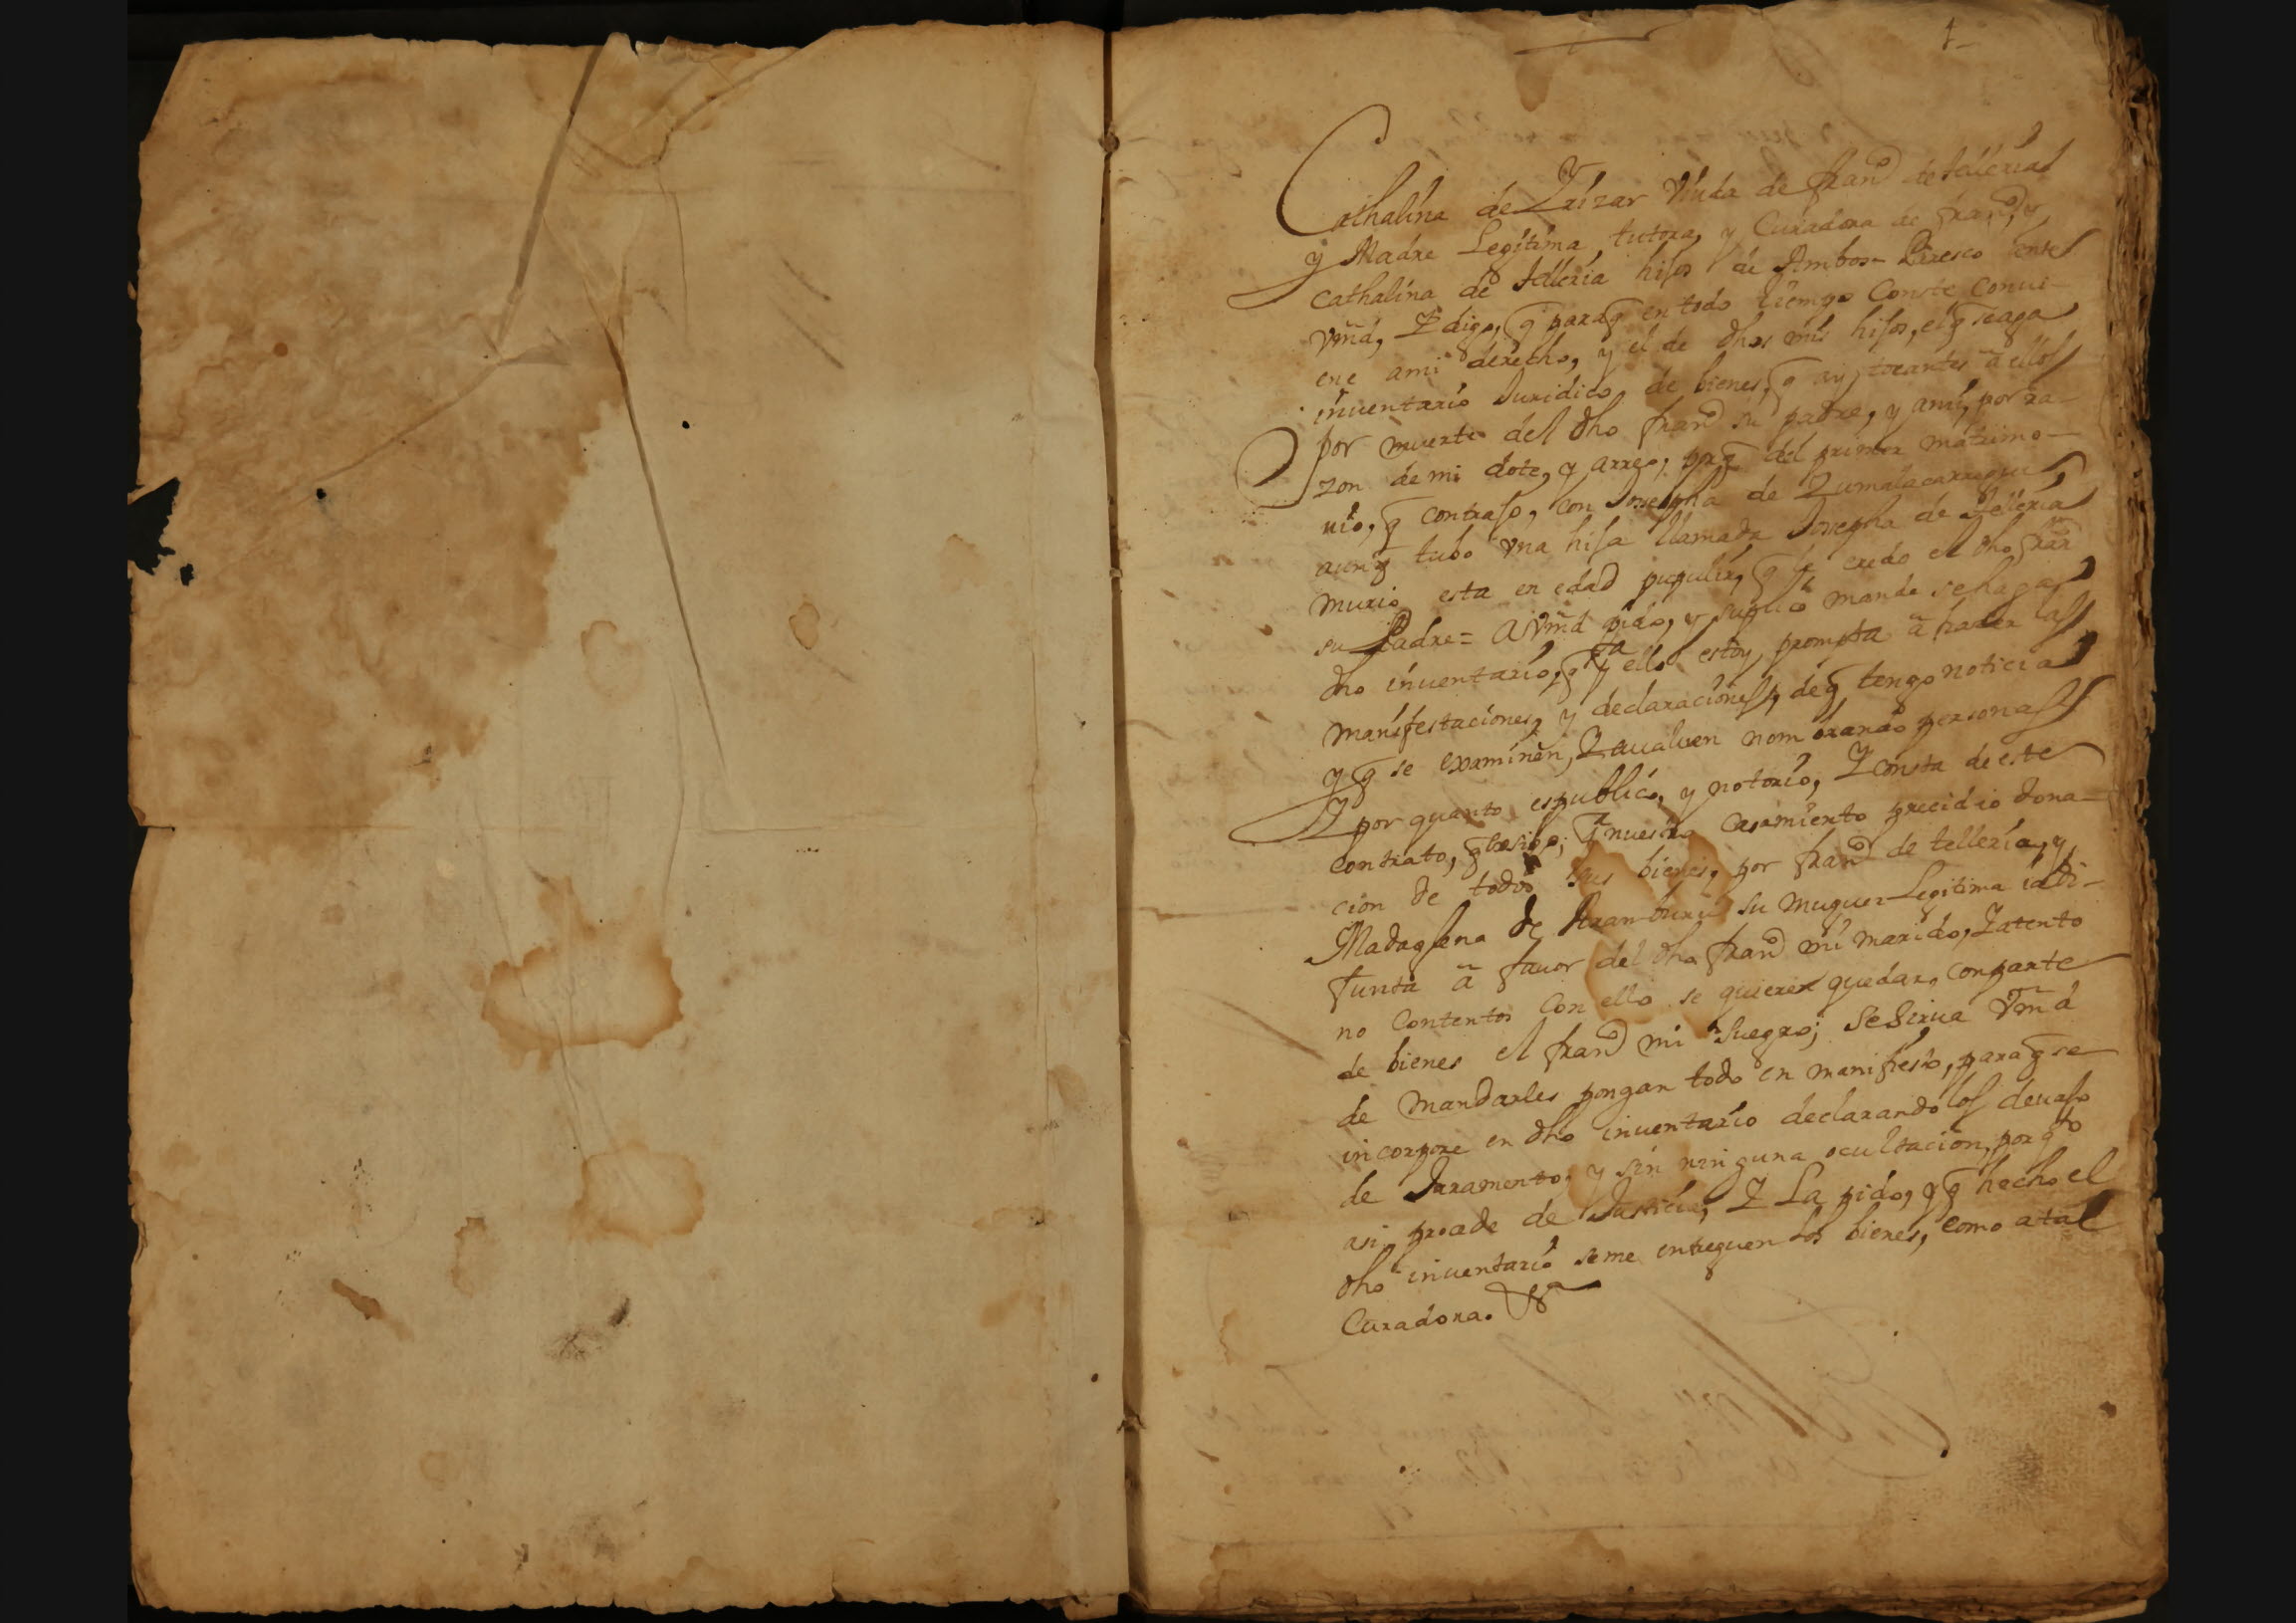 1
Cathalina de Yrizar Viuda de Franco de telleria
y Madre Legitima, tutora, y Curadora de Franco, y
Cathalina de telleria hijos de Ambos Paresco ante
Vmd, Y digo, q paraq en todo tiempo Conste Convi-
ene ami derecho, y el de dhos mis hijos, elq seaga
inventario Juridico, de bienes, q ay tocantes a ellos
por muerte del dho Franco su padre, y ami, por ra-
zon de mi dote, y arreo, porq del primer matrimo-
nio, q contrajo, con Josepha de Zumalacarregui
aunq tubo Vna hija llamada Josepha de telleria
murio esta en edad pupilar, q le eredo el dho Franco
su Padre = A Vmd pido, y suplico mande se haga
dho inventario, q pa ello estoy prompta a hacer las
manifestaciones, y declaraciones, deq tengo noticia
y q se examinen, Y avaluen nombrando personas
Y por quanto es publico, y notorio, Y consta de este
contrato, q presento; q a nuestro casamiento precidio dona-
cion de todos sus bienes, por Franco de telleria, y
Madaglena de Aramburu su muguer Legitima ia di-
funta a favor del dho Franco mi marido, Y atento
no contentos con ello se quieren quedar, con parte
de bienes el Franco mi Suegro; se Sirva Vmd
de mandarles pongan todo en manifiesto, paraq se
incorpore en dho inventario declarandolos devajo
de Juramento, y sin ninguna ocultacion, porq to
asi procede de Justicia, Y La pido, y q hecho el
dho inventario seme entreguen los bienes, como a tal
Curadora. &a